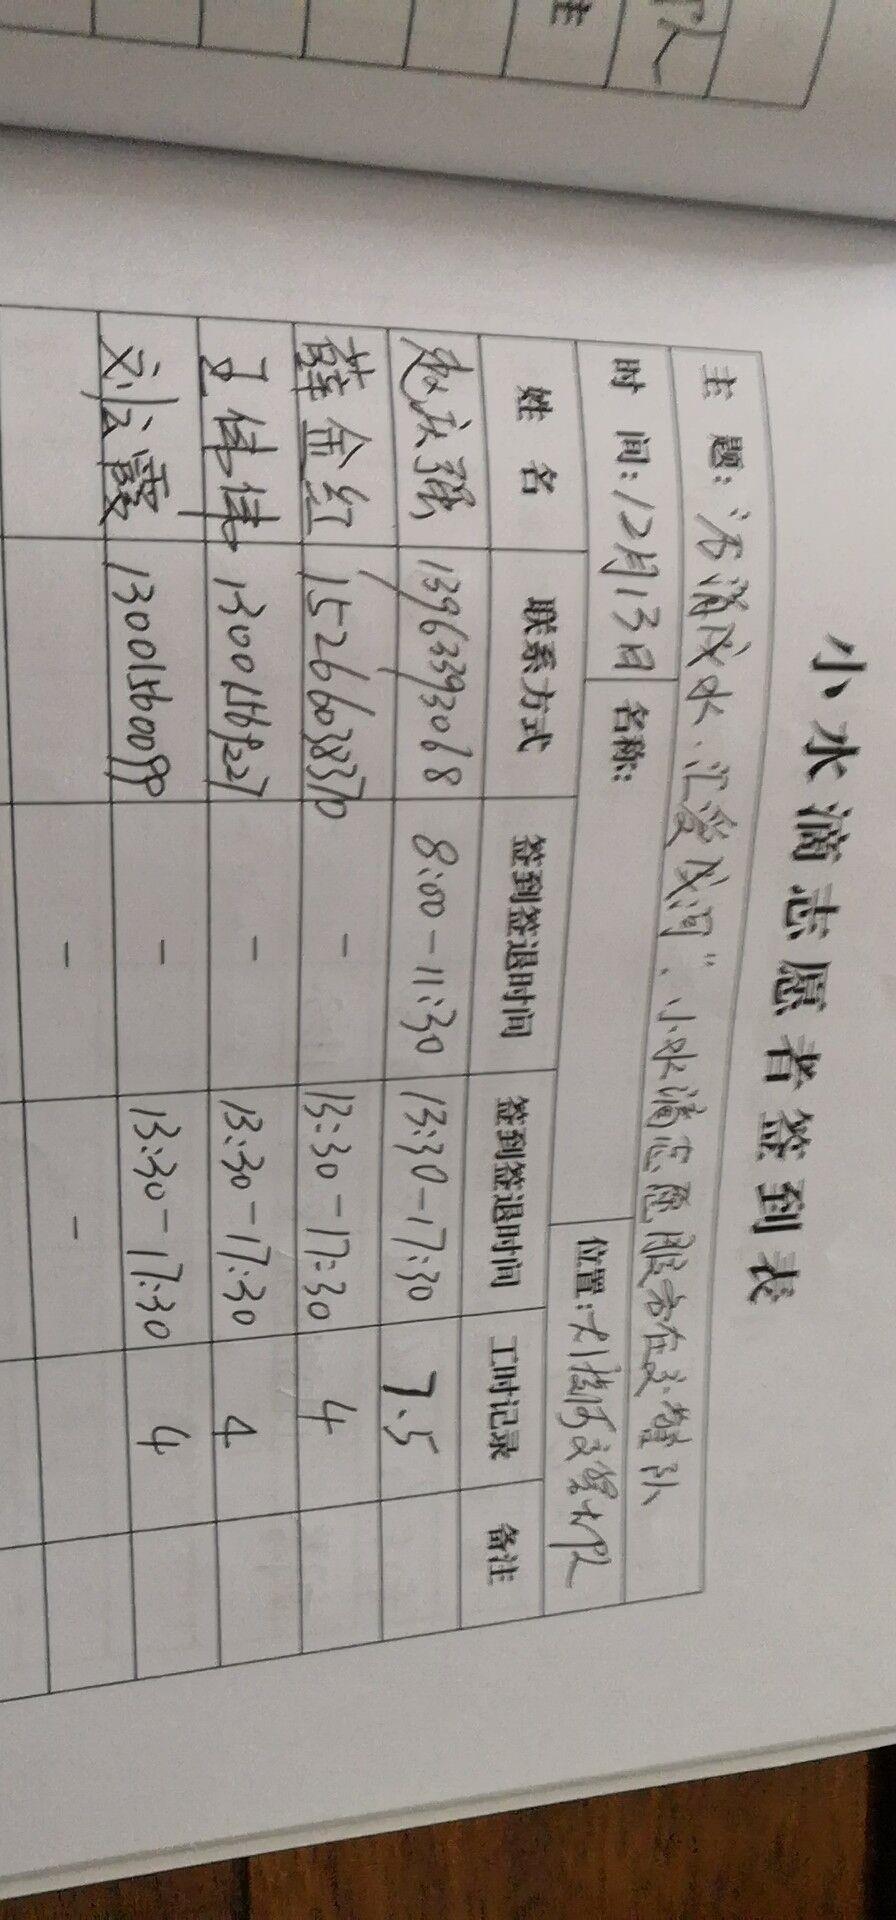 人
注
小水滴志愿者签到表
主 题：活滴成水、汇爱成河"、小水滴志愿服务在交警队
时 间：12月13日 名称： 位置：大清河交警大队
姓 名 联系方式 签到签退时间 签到签退时间 工时记录 备注
赵庆强 13963393068 8:00-11:30 13:30-17:30 7.5
薛金红 15266038370 - 13:30-17:30 4
王伟伟 - 13:30-17:30 4
刘云霞 13001560099 - 13:30-17:30 4
- -